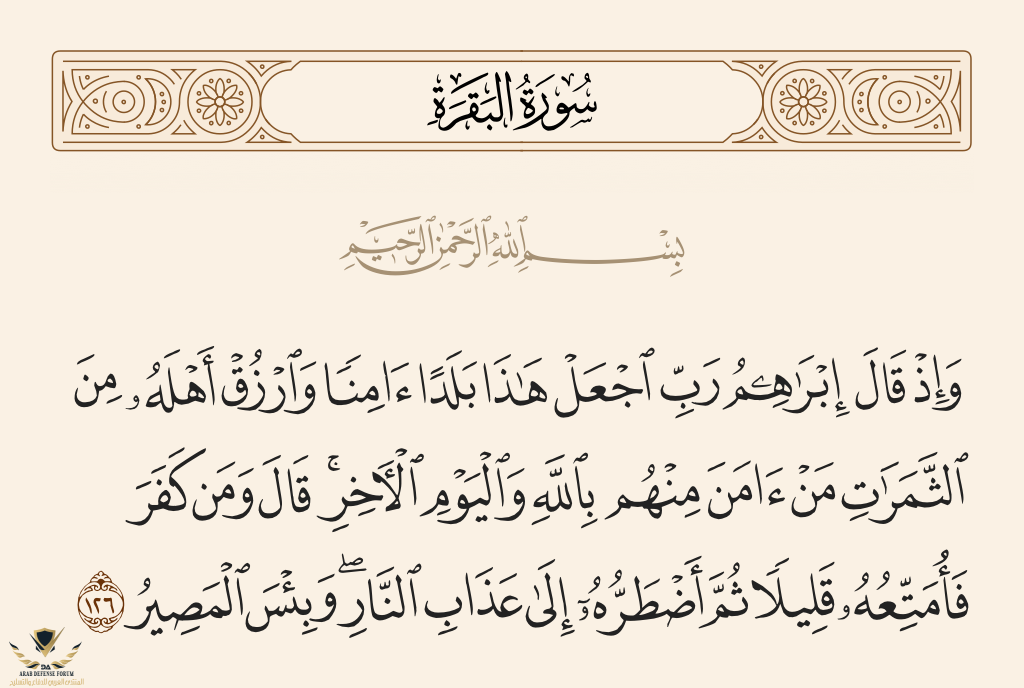 سُورَةُ البَقَرَةِ
بِسْمِ ٱللَّهِ ٱلرَّحْمَٰنِ ٱلرَّحِيمِ
وَإِذْ قَالَ إِبْرَٰهِـۧمُ رَبِّ ٱجْعَلْ هَـٰذَا بَلَدًا ءَامِنًا وَٱرْزُقْ أَهْلَهُۥ مِنَ
ٱلثَّمَرَٰتِ مَنْ ءَامَنَ مِنْهُم بِٱللَّهِ وَٱلْيَوْمِ ٱلْـَٔاخِرِ ۚ قَالَ وَمَن كَفَرَ
فَأُمَتِّعُهُۥ قَلِيلًا ثُمَّ أَضْطَرُّهُۥٓ إِلَىٰ عَذَابِ ٱلنَّارِ ۖ وَبِئْسَ ٱلْمَصِيرُ ١٢٦
DA
ARAB DEFENSE FORUM
المنتدى العربي للدفاع والتسليح